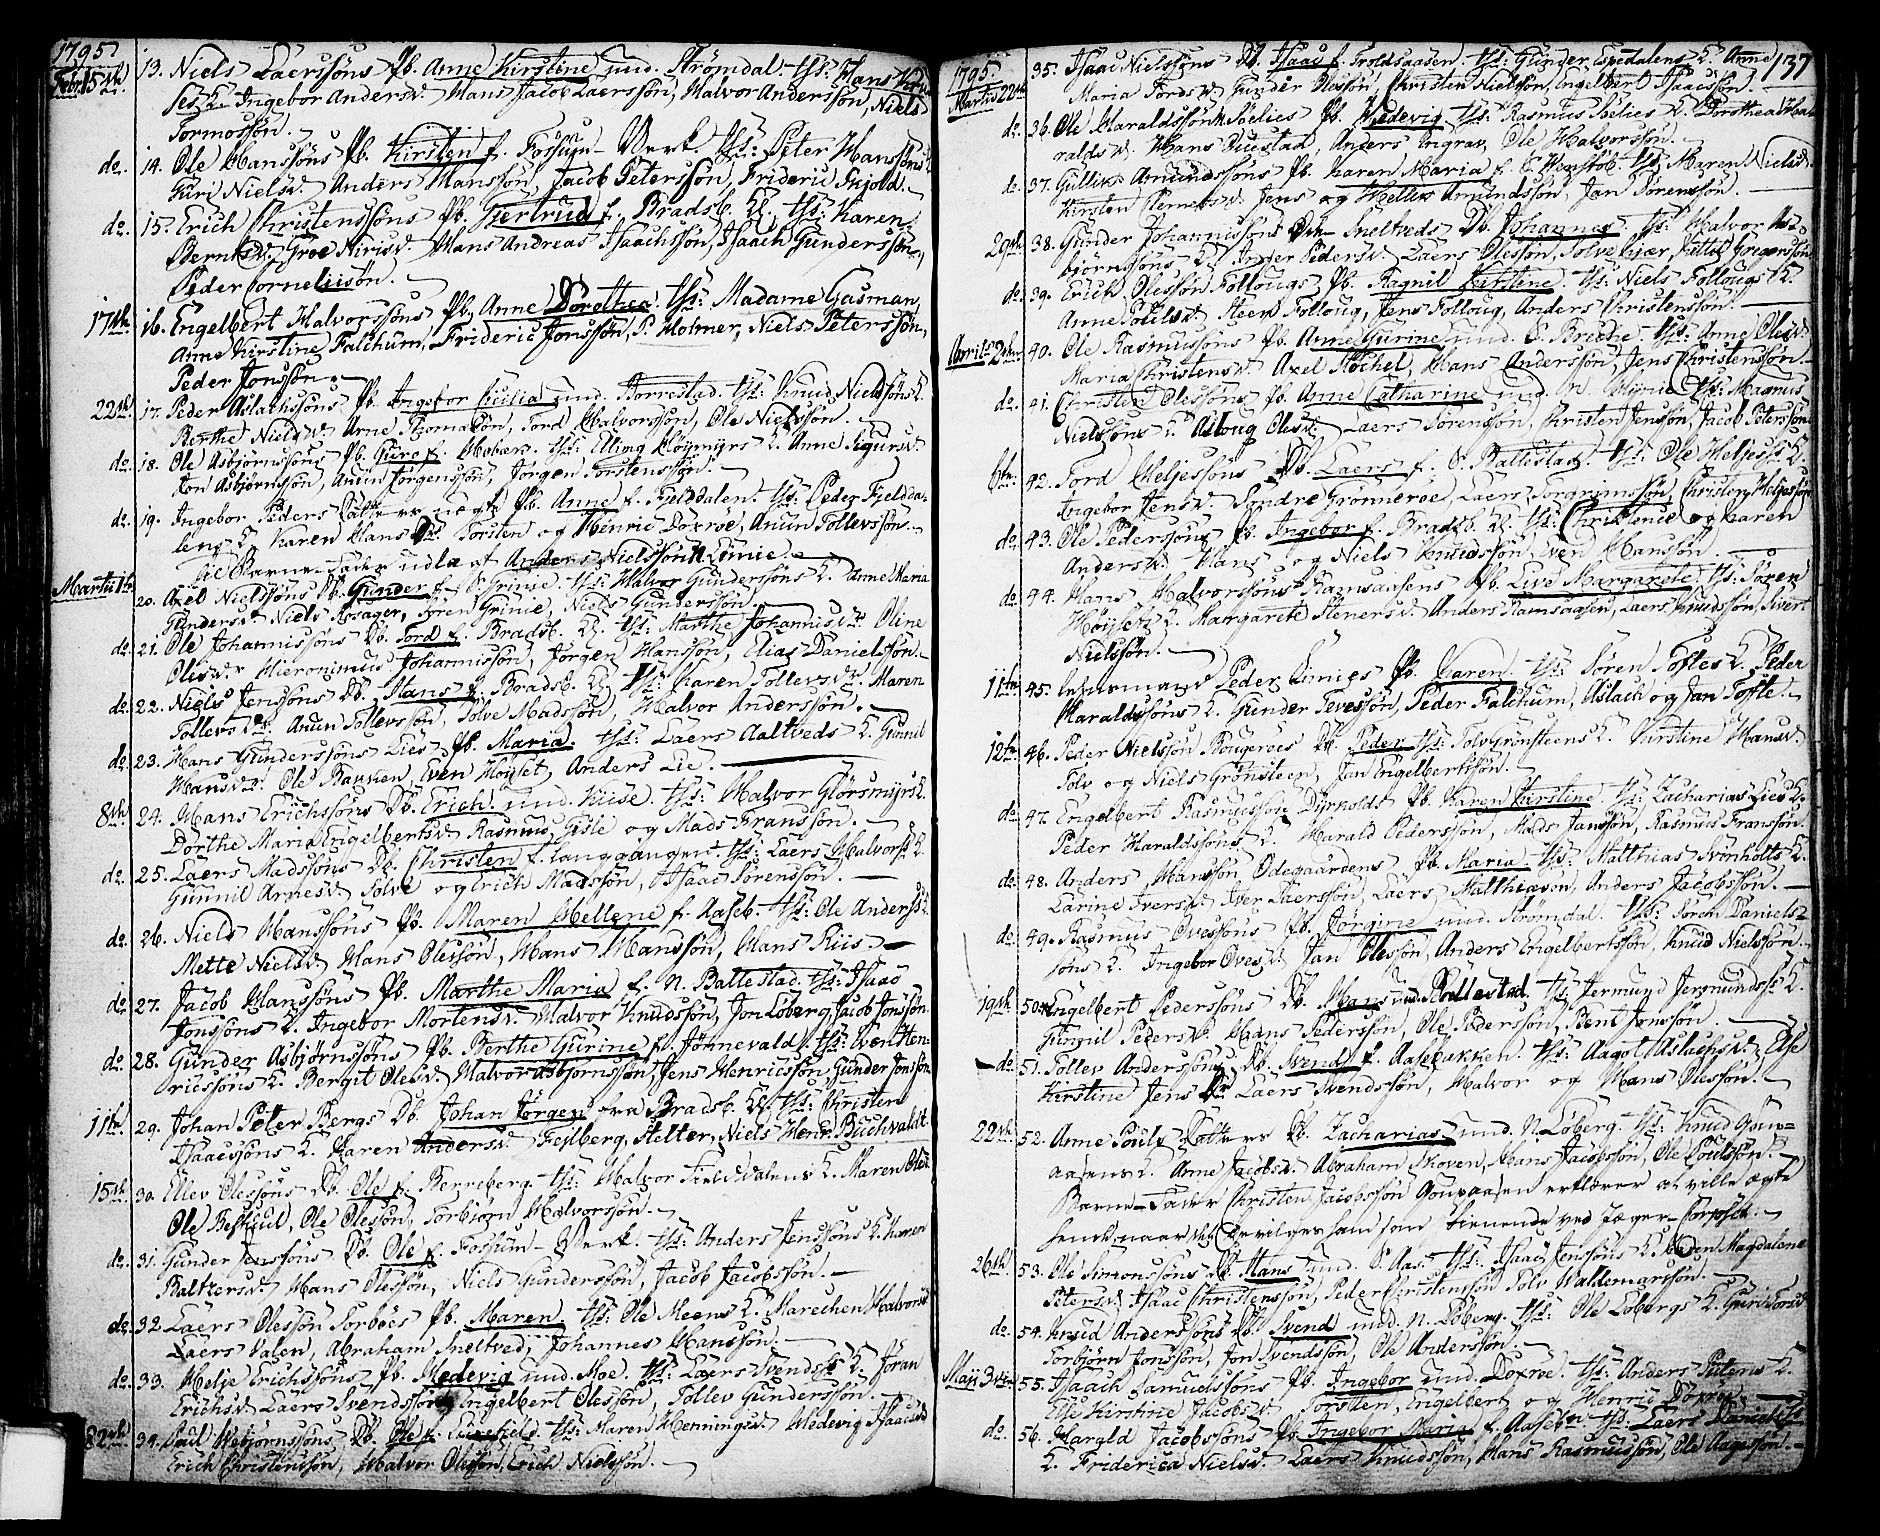 1795
Febr. 15de 13. Niels Laerssøns Pb. Anne Kirstine und. Strømdal. tss: Hans
ses K. Ingebor Andersd. Hans Jacob Laerssøn, Halvor Anderssøn, Niels
Tormossøn.
do. 14. Ole Hanssøns Pb. Kirsten f. Fossum-Verk. tss: Peter Hanssøns K.
Guri Nielsd. Anders Hanssøn, Jacob Peterssøn, Frideric
do. 15. Erich Christenssøns Pb. Gjertrud f. Bradsb. tss: Karen
Berntsd. Groe Hans Andreas Isaachssøn, Isaach Gunderssøn,
Peder Corneliisøn.
17de 16. Engelbert Halvorssøns Pb. Anne Dorothea. tss: Madame Gasman,
Anne Kirstine Falchum, Frideric Jonssøn, P. Holmer, Niels Peterssøn,
Peder Jonssøn.
22de 17. Peder Aslachssøns Pb. Ingebor Cicilia und. Borrestad. tss: Knud Nielssøns K.
Berthe Nielsd. Arne Thomasøn, Tord Halvorssøn, Ole Nielssøn.
do. 18. Ole Asbjørnssøns Pb. Guro f. tss: Elling Kløymyrs K. Anne Sigursd.
Jon Asbjørnssøn, Anun Jørgenssøn, Jørgen Torstenssøn.
do. 19. Ingebor Peders Datters uægte Pb. Anne f. Fjeldalen. tss: Peder Fjeldda-
lens K. Karen Hans Dr. Torsten og Henric Doxroe, Anun Tollevssøn.
til Barne-Fader udla af Anders Nielssøn
Martii 1te 20. Axel Nielssøns Db. Gunder f. Grinie. tss: Halvor Gunderssøns K. Anne Maria
Gundersd. Niels Søren Grinie, Niels Gunderssøn.
do. 21. Ole Johannissøns Db. Tord f. Bradsb. tss: Marthe Johannis Dr. Oline
Olesd. Hieronimus Johannissøn, Jørgen Hanssøn, Elias Danielssøn.
do. 22. Niels Jenssøns Db. Hans f. Bradsb. tss: Karen Tollevsd. Maren
Tollevs Dr. Anun Tollevssøn, Tolve Madssøn, Halvor Anderssøn.
do. 23. Hans Gunderssøns Lies Pb. Maria. tss: Laers Aaltveds K. Gunnil
Hansd. Ole Bakken, Even Høyset, Anders Lie.
8de 24. Hans Erichssøns Db. Erich und. Kiise. tss: Halvor Glørsmyrs K.
Dorthe Maria Engelbertsd. Rasmus Gisle og Mads Franssøn.
do. 25. Laers Madssøns Db. Christen f. Langgangen. tss: Laers Halvorss K.
Gunnil Arnesd. Tolve og Erich Madssøn, Isaac Sørenssøn.
do. 26. Niels Hanssøns Pb. Maren Hellene f. Aaseb. tss: Ole Anderss K.
Mette Nielsd. Hans Olessøn, Hans Hanssøn, Hans Riis.
do. 27. Jacob Hanssøns Pb. Marthe Maria f. N. Ballestad. tss: Isaac
Jonssøns K. Ingebor Mortensd. Halvor Knudssøn, Jon Løberg, Jacob Jonssøn.
do. 28. Gunder Asbjørnssøns Pb. Berthe Gurine f. Jønnevald. tss: Even Hen-
ricssøns K. Bergit Olesd. Halvor Asbjørnssøn, Jens Henricssøn, Gunder Jonssøn.
11te 29. Johan Peter Bergs Db. Johan Jørgen fra Bradsb. tss: Christen
Isaacssøns K. Karen Andersd. Fejlberg, Stelter, Niels Henr. Buchvaldt.
15de 30. Ellev Olessøns Db. Ole f. Berreberg. tss: Halvor Fjelddalens K. Maren Olesd.
Ole Olessøn, Torbiørn Halvorssøn.
do. 31. Gunder Jenssøns Db. Ole f. Fossum-Verk. tss: Anders Jenssøns K. Karen
Baltzersd. Hans Olessøn, Niels Gunderssøn, Jacob Jacobssøn.
do. 32. Laers Olessøn Torbøes Pb. Maren. tss: Ole Meens K. Marechen Halvorsd.
Laers Dalen, Abraham Sneltved, Johannes Hanssøn.
do. 33. Helje Erichssøns Pb. Hedevig und. Moe. tss: Laers Svendss K. Jøran
Erichsd. Laers Svendssøn, Engelbert Olessøn, Tollev Gunderssøn.
34. Paul Webjørnssøns Db. Ole f. tss: Maren Henningsd. Hedevig Isaacsd.
Erich Christenssøn, Halvor Olessøn, Erich Nielssøn.
137
1795
Martii 22de 35. Isaac Nielssøns Db. Isaac f. Troldsaasen. tss: Gunder Espedalens K. Anne
Maria Tordsd. Gunder Olessøn, Christen Nielssøn, Engelbert Isaacssøn.
do. 36. Ole Haraldssøn Bøelies Pb. Hedevig. tss: Rasmus Bøelies K. Dorthea Ha-
raldsd. Hans Puustad, Anders Ole Halvorssøn.
do. 37. Gullik Amundssøns Pb. Karen Maria f. tss: Maren Nielsd.
Kirsten Clemetsd. Jens og Hellie Amundssøn, Jan Sørenssøn.
29de 38. Gunder Johannissøns Sneltveds Db. Johannes. tss: Halvor As-
bjørnssøns K. Inger Pedersd. Laers Olessøn, Tolve Kjær, Kittil Gregerssøn
do. 39. Erich Olessøn Follougs Pb. Ragnil Kirstine. tss: Niels Follougs K.
Anne Poulsd. Steen Folloug, Jens Folloug, Anders Christenssøn.
Aprilis 2den 40. Ole Rasmussøns Pb. Anne Gurine und. S. Brekke. tss: Anne Olesd.
Maria Christensd. Axel Støchel, Hans Anderssøn, Jens Christenssøn.
do. 41. Christen Olessøns Pb. Anne Catharine und. N. tss: Magnus
Nielssøns K. Asloug Olesd. Laers Sørenssøn, Christen Jenssøn, Jacob Peterssøn.
6te 42. Tord Heljessøns Db. Laers f. S. Ballestad. tss: Ole Heljess K.
Ingebor Jensd. Sondre Grønneroe, Laers Torgrimssøn, Christen Heljessøn
do. 43. Ole Pederssøns Pb. Ingebor f. Bradsb. tss: Christence og Karen
Andersd. Hans og Niels Knudssøn, Even Hanssøn.
do. 44. Hans Halvorssøns Ramsaasens Pb. Live Margarete. tss: Søren
Høysets K. Margarete Stenersd. Anders Ramsaasen, Laers Knudssøn, Sivert
Nielssøn.
11te 45. Peder Linnies Pb. Karen. tss: Søren Toftes K. Peder
Haraldssøns K. Gunder Tevessøn, Peder Falchum, Aslach og Jan Tofte.
12te 46. Peder Nielssøn Bougerøes Db. Peder. tss: Tolv Grønsteens K. Kirstine Hansd.
Tolv og Niels Grønsteen, Jan Engelbertssøn.
do. 47. Engelbert Rasmussøn Dyrkolds Pb. Karen Kirstine. tss: Zacharias Lies K.
Peder Haraldssøns K. Harald Pederssøn, Mads Janssøn, Rasmus Franssøn.
do. 48. Anders Hanssøn Ødegaardens Pb. Maria. tss: Matthias Svinholts K.
Carine Iversd. Iver Laerssøn, Laers Matthiasøn, Anders Jacobssøn.
do. 49. Rasmus Ovessøns Pb. Jørgine und. Strømdal. tss: Søren Daniels-
søns K. Ingebor Ovesd. Jan Olessøn, Anders Engelbertssøn, Knud Nielssøn.
19de 50. Engelbert Pederssøns Db. Hans und. Bøllestad. tss: Jermund Jermundss K.
Gunnil Pedersd. Hans Pederssøn, Ole Pederssøn, Bent Jenssøn.
do. 51. Tollev Anderssøns Db. Svend f. Aasebakken. tss: Aagot Aslachsd. Else
Kirstine Jens Dr. Laers Svendssøn, Halvor og Hans Olessøn.
22de 52. Anne Pouls Datters Db. Zacharias und. N. Løberg. tss: Knud Goup-
aasens K. Anne Jacobsd. Abraham Skoven, Hans Jacobssøn, Ole Poulssøn.
Barne-Fader Christen Jacobssøn Goupaasen erklærer at ville ægte
hende naar som tienende ved Jæger-Corpset.
26de 53. Ole Simonssøns Db. Hans und. S. Aas. tss: Isaac Jenssøns K. Maren Magdalene
Petersd. Isaac Christenssøn, Peder Christenssøn Tolv Waldemarssøn.
do. 54. Knud Anderssøns Db. Svend und. N. Løberg. tss: Ole Løbergs K. Guri Torsd.
Torbjørn Jonssøn, Jon Svendssøn, Ole Anderssøn.
Maji 3die 55. Isaach Samuelssøns Pb. Ingebor und. Doxroe. tss: Anders K.
Else Kirstine Jacobsd. Torsten, Engelbert og Henric Doxroe.
do. 56. Harald Jacobssøns Pb. Ingebor Maria f. Aaseb. tss: Laers Danielss
K. Friderica Nielsd. Laers Knudssøn, Hans Rasmussøn, Ole Aagessøn.